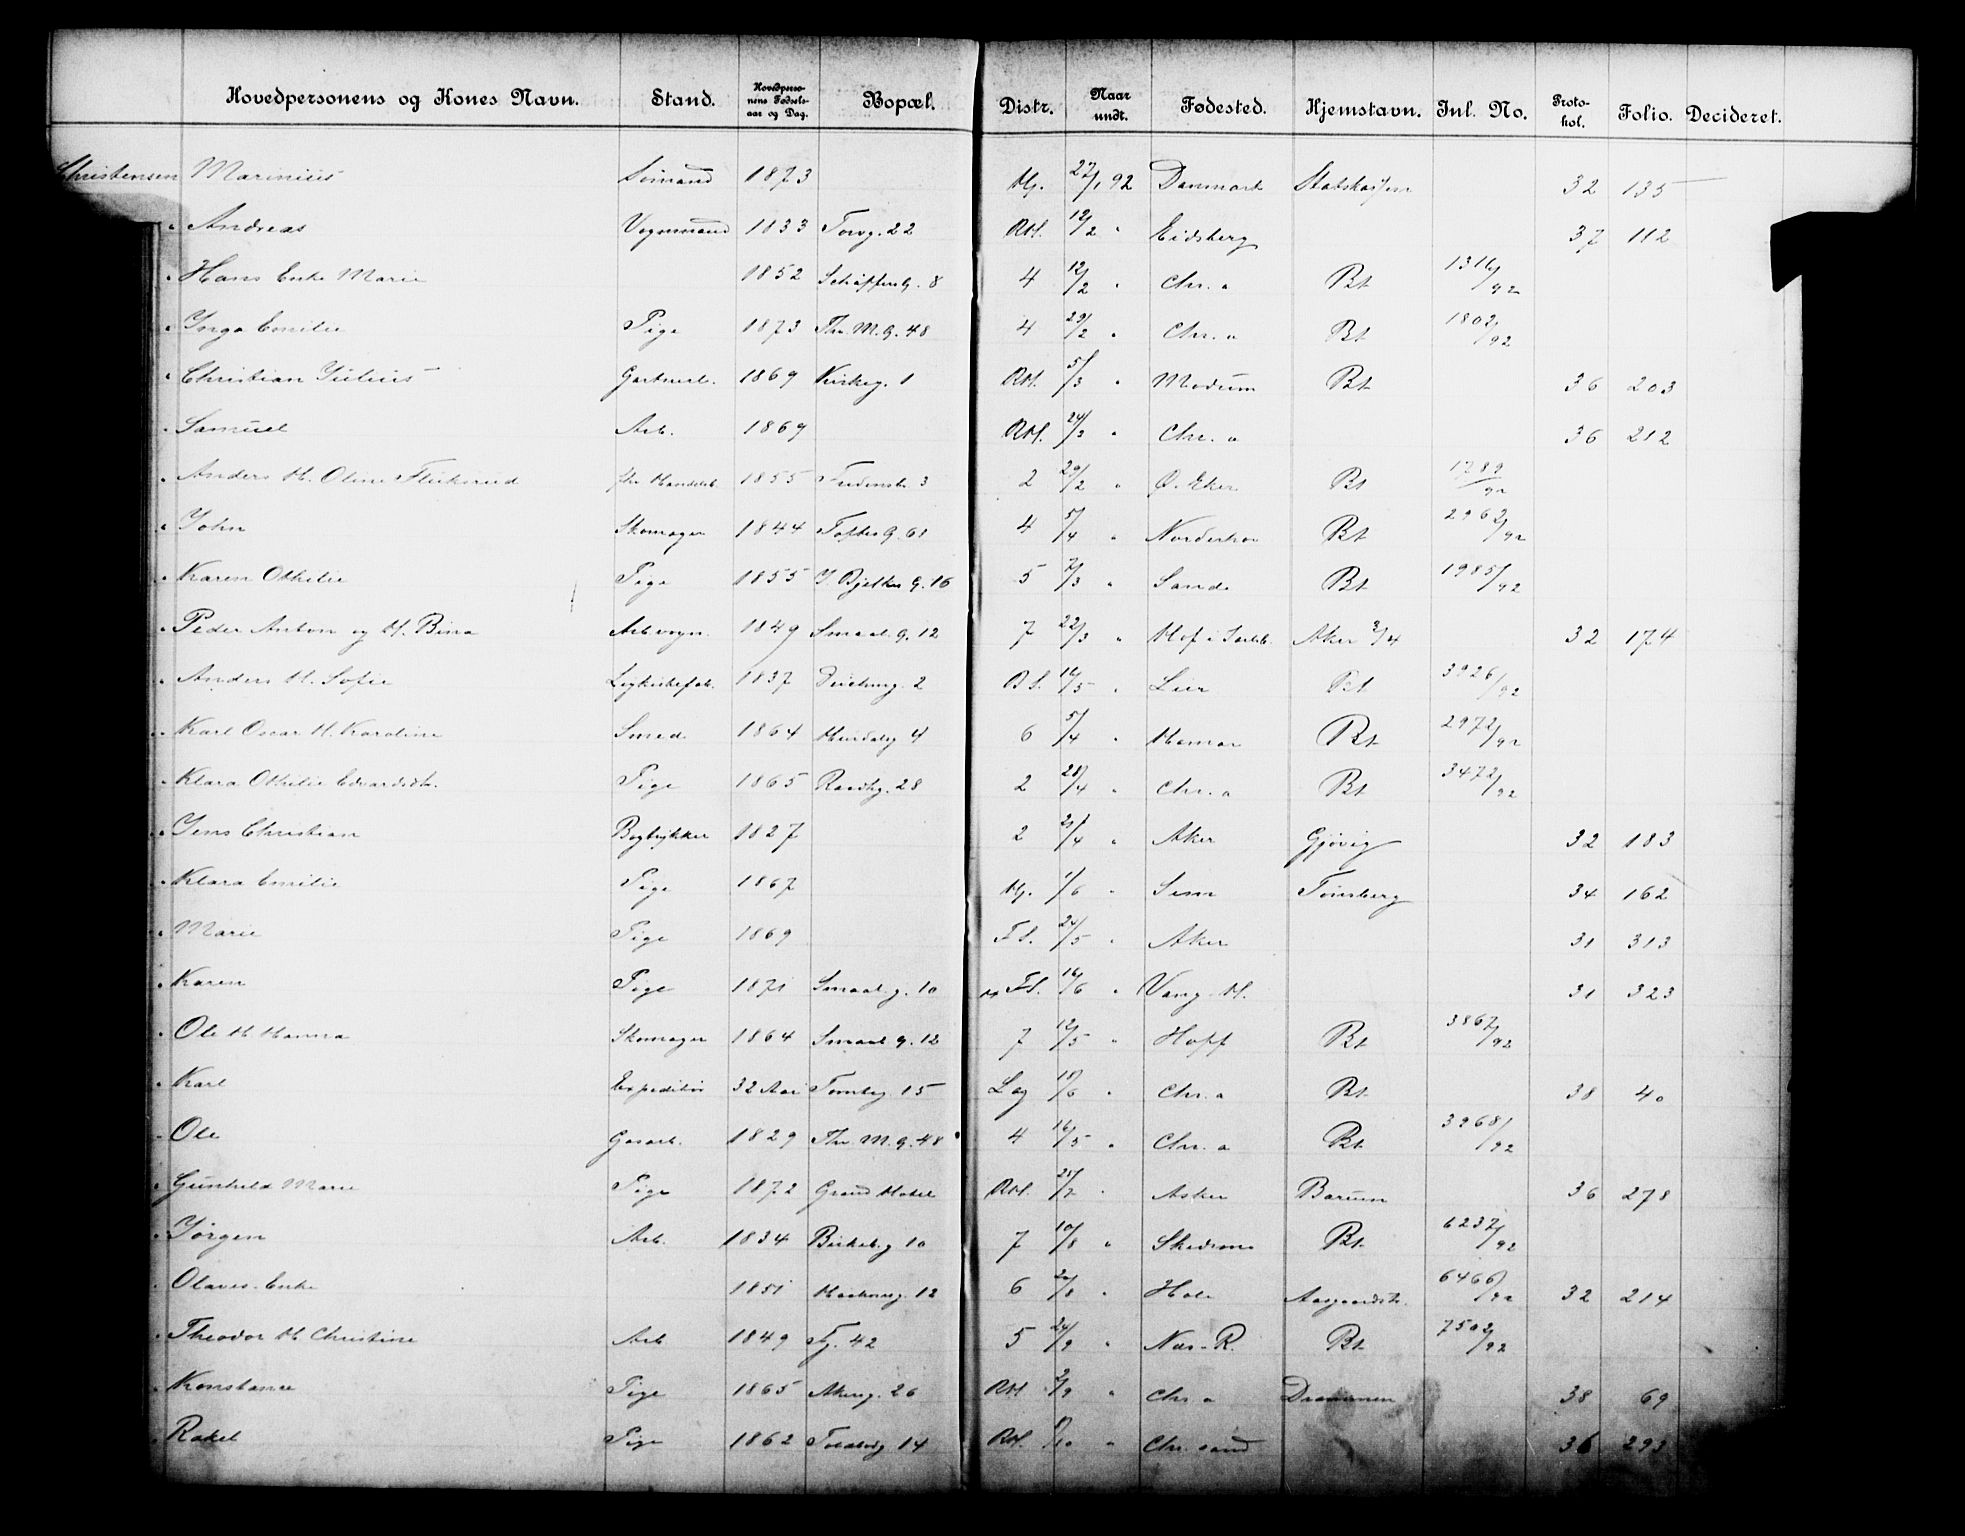 Hovedpersonens og Kones Navn. Stand. Hovedpersonens Fødselsaar og Dag. Bopæl. Distr. Naar undt. Fødested. Hjemstavn. Jnl. No. Protokol. Folio. Decideret.
Christensen Marinius Sømand 1873 Hj. 27/1 92 Danmark Statskassen 32 135
" Andreas Vognmand 1833 Torvg. 22 RH. 12/2 " Eidsberg 37 112
" Hans Enke Marie 1852 8 4 12/2 " Chr. a Bt 1316/92
" Inga Emilie Pige 1873 Thv. M. G. 48 4 29/2 " Chr. a Bt 1802/92
" Christian Julius Gartnerl. 1869 Kirkeg. 1 RH. 5/3 " Modum Bt 36 203
" Samuel Arb. 1869 RH. 24/3 " Chr. a 36 212
" Anders H. Oline Fliksrud fhv Handelsb. 1855 3 2 29/2 " Ø. Eker Bt 1789/92
" John Skomager 1844 Toftes G. 61 4 5/4 " Norderhov Bt 2962/92
" Karen Othilie Pige 1855 J. Bjelkes G. 16 5 7/3 " Sande Bt 1985/92
" Peder Anton og H. Bina Arb vogn. 1849 Smaal. G. 12 7 22/3 " Hof i Jarlsb. Aker 3/4 32 174
" Anders H. Sofie Ligkistefab. 1837 2 16/5 " Lier Bt 3926/92
" Karl Oscar H. Karoline Smed 1864 4 6 5/4 " Hamar Bt 2972/92
" Klara Othilie Edvardsdtr. Pige 1865 Raadhg. 28 2 28/4 " Chr. a Bt 3472/92
" Jens Christian Bogtrykker 1827 2 21/4 " Aker Gjøvig 32 183
" Klara Emilie Pige 1867 Hj. 1/6 " Sem Tønsberg 34 162
" Marie Pige 1869 F.S. 24/5 " Aker 31 313
" Karen Pige 1871 Smaal. g. 10 F.S. 16/6 " Vang. H. 31 323
" Ole H. Hanna Skomager 1864 Smaal G. 12 7 12/5 " Hoff Bt 3867/92
" Karl Expeditør 32 Aar Tomteg 15 Læg 18/6 " Chr. a Bt 38 40
" Ole Gasarb. 1829 Thv. M. G. 48 4 16/5 " Chr. a Bt 3968/92
" Gunhild Marie Pige 1872 Grand Hotel RH. 25/7 " Asker Bærum 36 278
" Jørgen Arb. 1834 Birkeb. g 10 7 10/8 " Skedsmo Bt 6237/92
" Olaves Enke 1851 12 6 20/8 " Hole Aasgaardstr. 6466/92 32 214
" Theodor H Christine Arb 1849 42 5 24/9 " Næs. R. Bt 7502/92
" Konstance Pige 1865 Akersg. 26 RH 2/9 " Chr. a Drammen 38 69
" Rakel Pige 1862 14 RH. 8/10 " Chr. sand 36 293